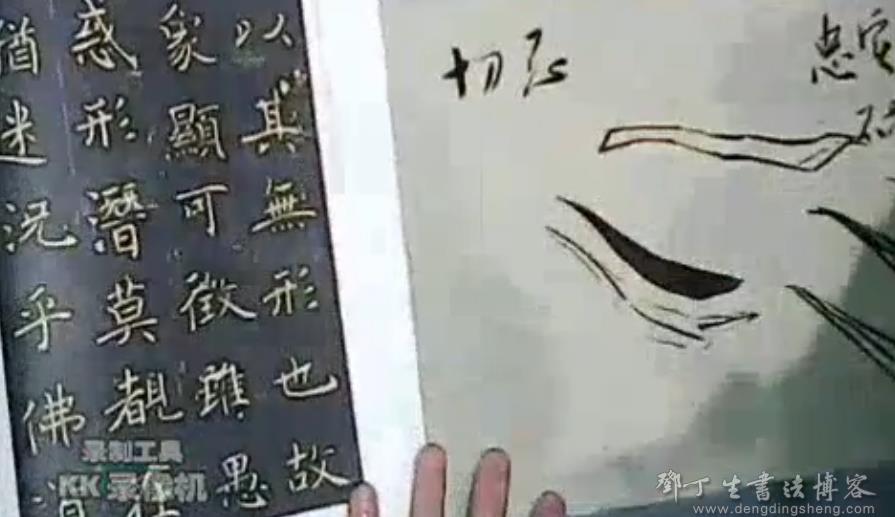 以其無形也故
象顯可徵雖愚
惑形潛莫覩在
猶迷況乎佛
切
点
录制工具
KK 录像机
鄧丁生書法博客
www.dengdingsheng.com